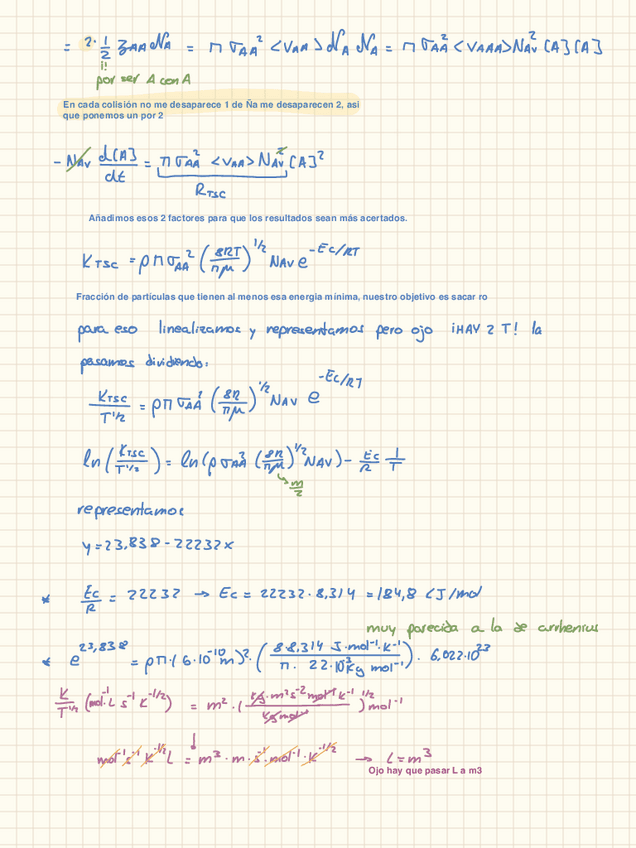 = 2· 1/2 z_AA N_A = π σ_AA² <v_AA> N_A N_A = π σ_AA² <v_AAA> N_Av² [A][A]
¡!
por ser A con A
En cada colisión no me desaparece 1 de Ña me desaparecen 2, asi
que ponemos un por 2
- N_Av d[A]/dt = π σ_AA² <v_AA> N_Av² [A]²
R_TSC
Añadimos esos 2 factores para que los resultados sean más acertados.
K_TSC = ρ π σ_AA² (8RT/πμ)^1/2 N_AV e^-Ec/RT
Fracción de partículas que tienen al menos esa energia mínima, nuestro objetivo es sacar ro
para eso linealizamos y representamos pero ojo ¡HAY 2 T! la
pasamos dividendo:
K_TSC/T^1/2 = ρ π σ_AA² (8R/πμ)^1/2 N_AV e^-Ec/RT
ln(K_TSC/T^1/2) = ln(ρ σ_AA² (8R/πμ)^1/2 N_AV) - Ec/R 1/T
m/2
representamos
y = 23,838 - 22232x
* Ec/R = 22232 → Ec = 22232·8,314 = 184,8 kJ/mol
muy parecida a la de arrhenius
* e^23,838 = ρ π·(6·10^-10 m)²·(8·8,314 J·mol^-1·K^-1 / π· 22·10^-3 kg mol^-1)· 6,022·10^23
K/T^1/2 (mol^-1·L s^-1 K^-1/2) = m²·(kg·m²s^-2 mol^-1 K^-1 / kg mol^-1)^1/2 mol^-1
mol^-1 s^-1 K^-1/2 L = m³·m·s^-1·mol^-1·K^-1/2 → L = m³
Ojo hay que pasar L a m3